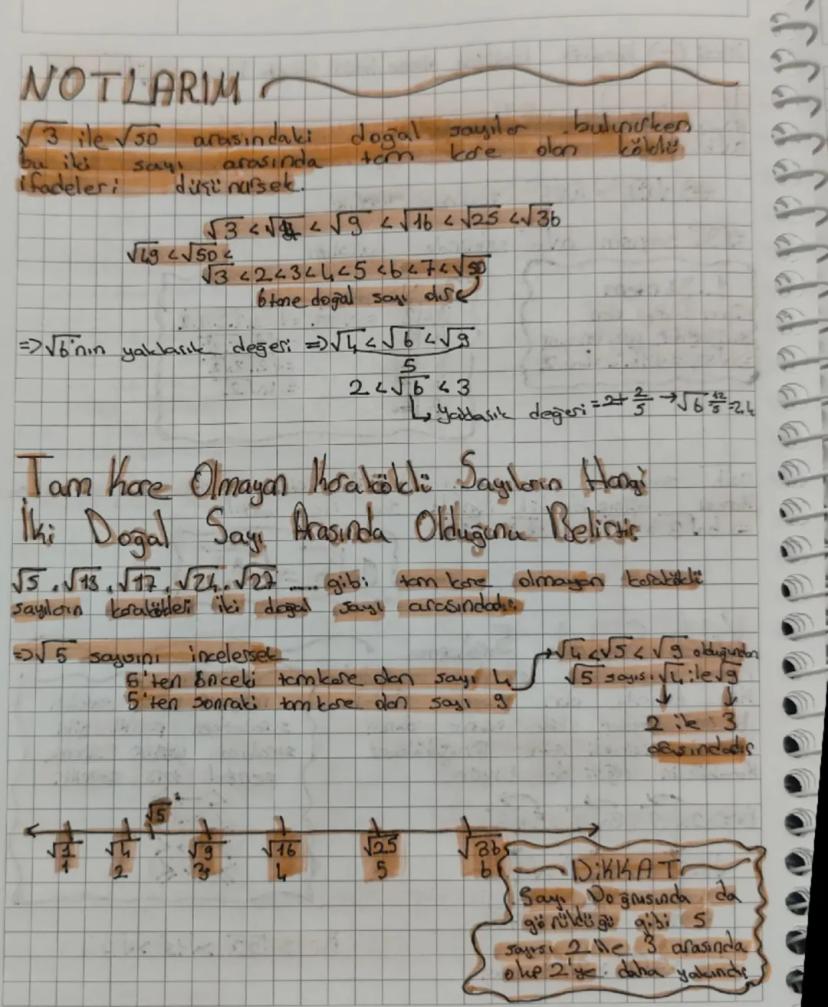 NOTLARIM
√3 ile √50 arasındaki doğal sayılar bulunurken
bu iki sayı arasında tam kare olan köklü
ifadeleri düşünürsek.
√3 < √4 < √9 < √16 < √25 < √36
√49 < √50 <
√3 < 2 < 3 < 4 < 5 < 6 < 7 < √50
6 tane doğal sayı
=> √6'nın yaklaşık değeri => √4 < √6 < √9
5
2 < √6 < 3
↳ yaklaşık değeri = 2+ 2/5 → √6 12/5 = 2,4
Tam Kare Olmayan Karaköklü Sayıların Hangi
İki Doğal Sayı Arasında Olduğunu Belirtir
√5, √13, √17, √24, √27 .... gibi tam kare olmayan karaköklü
sayıların karakökleri iki doğal sayı arasındadır.
=> √5 sayısını incelersek
5'ten önceki tam kare olan sayı 4
5'ten sonraki tam kare olan sayı 9
→ √4 < √5 < √9 olduğundan
√5 sayısı √4 ile √9
↓ ↓
2 ile 3
arasındadır
√5
√1 √4 √9 √16 √25 √36
1 2 3 4 5 6
DİKKAT
Sayı Doğrusunda da
görüldüğü gibi 5
sayısı 2 ile 3 arasında
olup 2'ye daha yakındır